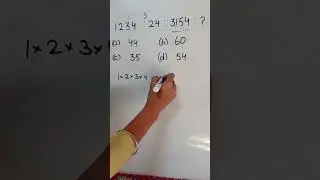 1234 : 24 :: 3154 : ?
(a) 44 (b) 60
(c) 35 (d) 54
1×2×3×4